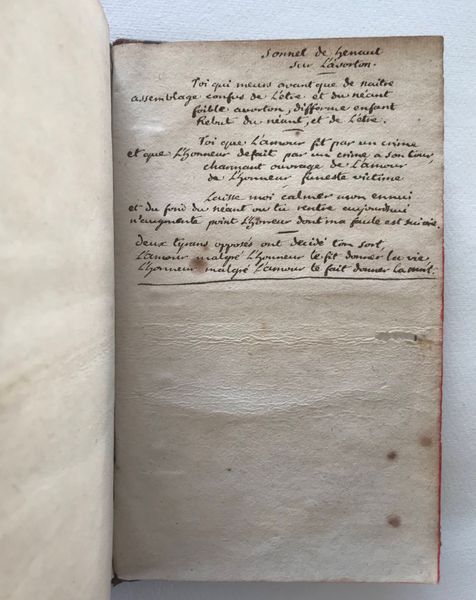 Sonnet de henaut
sur L'avorton.
Toi qui meurs avant que de naitre
assemblage confus de L'étre et du néant
foible avorton, difforme enfant
Rebut du néant, et de L'étre.
Toi que L'amour fit par un crime
et que L'honneur defait par un crime a son tour
charmant ouvrage de L'amour
de L'honneur funeste victime
Laisse moi calmer mon ennui
et du fond du néant ou tu rentre aujourdhui
n'augmente point L'horreur dont ma faute est suivie.
Deux tyrans opposés ont décidé ton sort,
L'amour malgré L'honneur te fit donner la vie
L'honneur malgré L'amour te fait donner la mort.